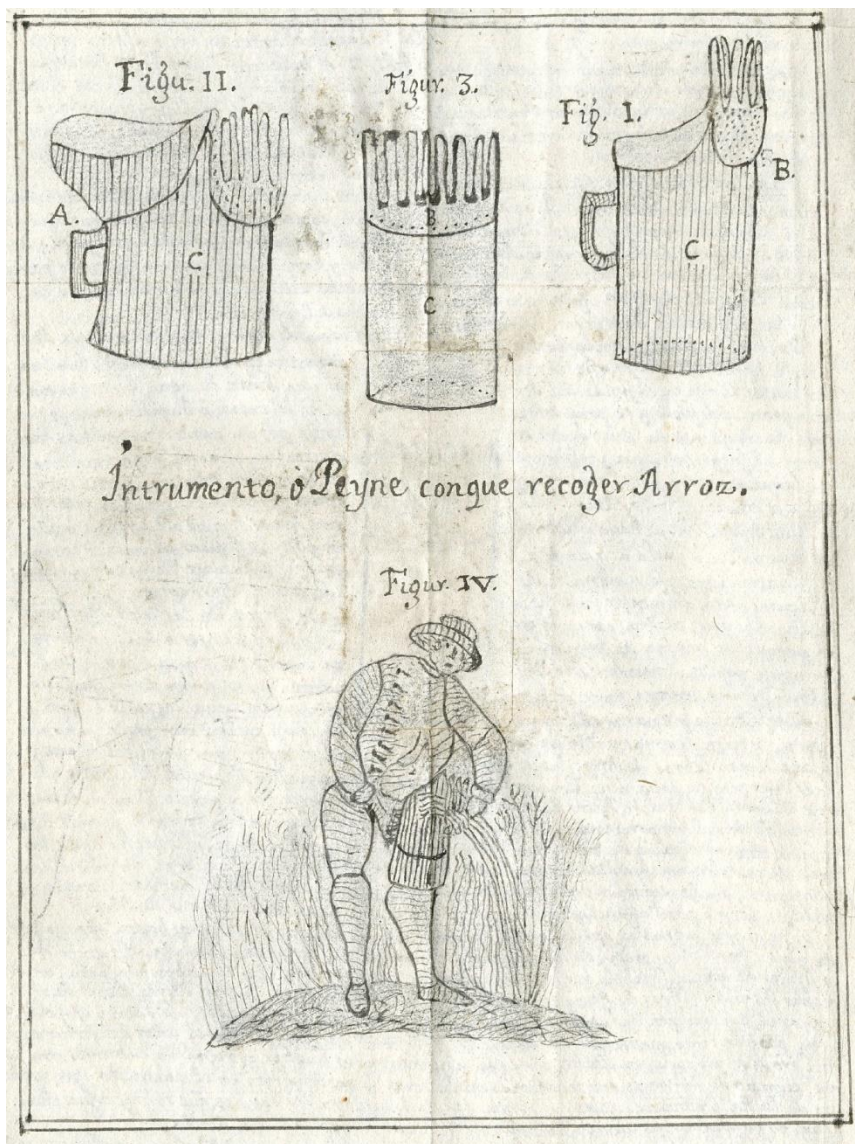 Figu. II.
Figur. 3.
Fig. I.
A.
B.
C
B
C
C
Intrumento, ò Peyne conque recoger Arroz.
Figur. IV.